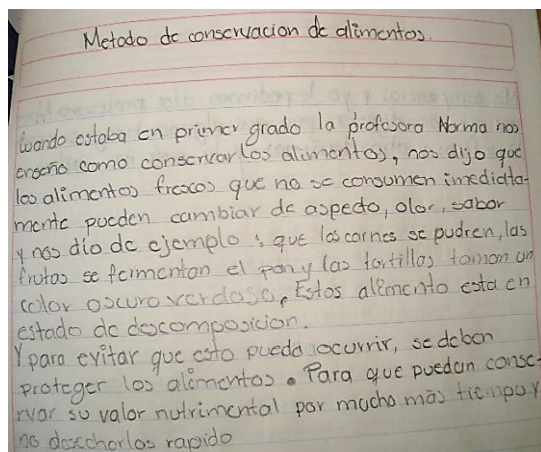 Metodo de conservacion de alimentos.
Cuando estaba en primer grado la profesora Norma nos
enseño como conservar los alimentos, nos dijo que
los alimentos frescos que no se consumen inmediata-
mente pueden cambiar de aspecto, olor, sabor
y nos dio de ejemplo: que las carnes se pudren, las
frutas se fermentan el pan y las tortillas toman un
color oscuro verdoso, Estos alimento esta en
estado de descomposicion.
Y para evitar que esto pueda ocurrir, se deben
proteger los alimentos. Para que puedan conse-
rvar su valor nutrimental por mucho más tiempo y
no desecharlos rapido